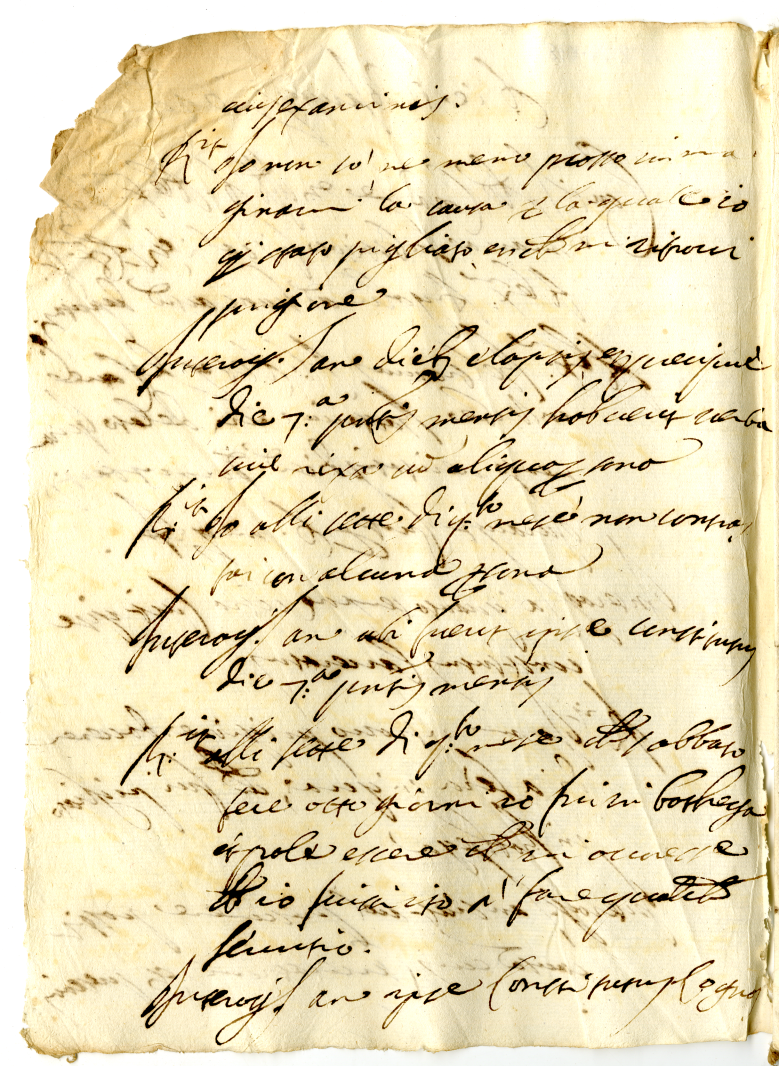 eius examinis.
R.it Io non so ne meno posso imma
ginarmi la causa p la quale io
sij stato pigliato, et che mi ritrovi
prigione
Interrog. an diebus elapsis, et precipue
die 7.a pntis mensis habuerit verba
sive rixa cu aliqua psona
R.it Io alli sette di q.to mese non contra,
tai con alcuna psona
Interrog. an ubi fuerit ipse constitutus
die 7.a pntis mensis
R.it alli sette di q.to mese che sabbato
fece otto giorni io fui in bottega
et potra essere che mi
ch io fussi ito a fare qualche
servitio.
Interrog. an ipse Constitutus